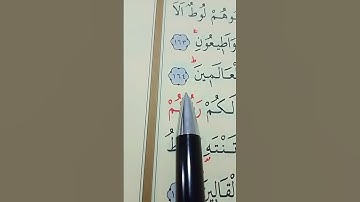 أَخُوهُمْ لُوطٌ أَلَا
وَأَطِيعُونِ ﴿١٦٣﴾
الْعَالَمِينَ ﴿١٦٤﴾
لَكُمْ رَبُّكُمْ
تَنْتَهِ
الْقَالِينَ